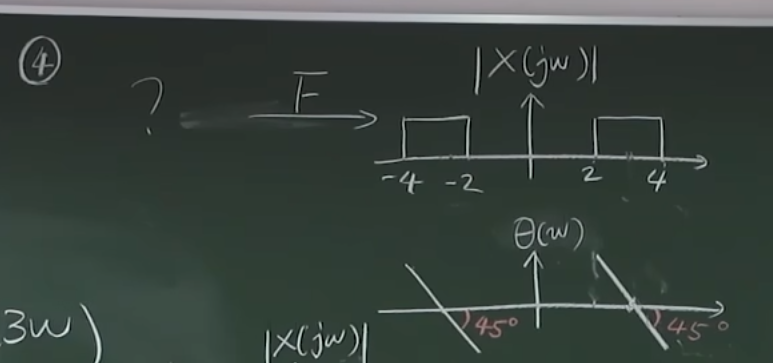 ④
? F |X(jw)|
-4 -2 2 4
θ(w)
45° 45°
3w) |X(jw)|